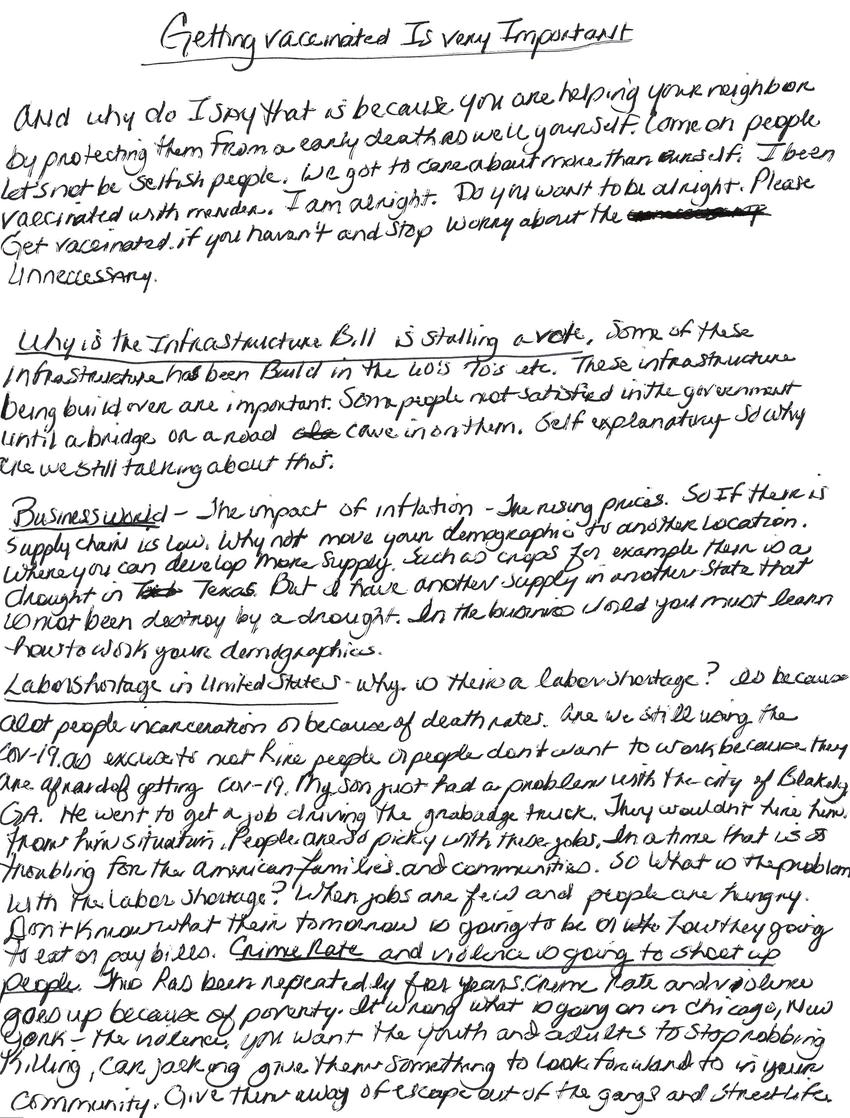 Getting vaccinated Is very Important
And why do I say that is because you are helping your neighbor
by protecting them from a early death as well yourself. Come on people
let's not be selfish people. We got to care about more than ourself. I been
vaccinated with mender. I am alright. Do you want to be alright. Please
Get vaccinated. if you haven't and stop worry about the
Unneccessary.
Why is the Infrastructure Bill is stalling a vote. Some of these
infrastructure has been Build in the 60's 70's etc. These infrastructure
being build over are important. Some people not satisfied in the government
until a bridge or a road cave in on them. Self explanatory So why
are we still talking about this.
Business world - The impact of inflation - The rising prices. So If there is
supply chain is low. Why not move your demographic to another location.
Where you can develop more supply. Such as crops for example their is a
drought in Texas. But I have another supply in another State that
is not been destroy by a drought. In the business world you must learn
how to work your demographics.
Labor shortage in United States - Why. is their a labor shortage? Is because
alot people incarceration or because of death rates. Are we still using the
Cov-19. as excuse to not hire people or people don't want to work because they
are afraid of getting Cov-19. My son just had a problem with the city of Blakely
GA. He went to get a job driving the grabadge truck. They wouldn't hire him.
from him situation. People are so picky with these jobs. In a time that is so
troubling for the American families. and communities. So What is the problem
with the labor shortage? When jobs are few and people are hungry.
Don't know what their tomorrow is going to be or how they going
to eat or pay bills. Crime Rate and violence is going to shoot up
people. This has been repeatedly for years. Crime Rate and violence
goes up because of poverty. It wrong what is going on in Chicago, New
York - the violence. you want the youth and adults to stop robbing
killing, car jacking give them something to look forward to in your
community. Give them away of escape out of the gangs and street life.